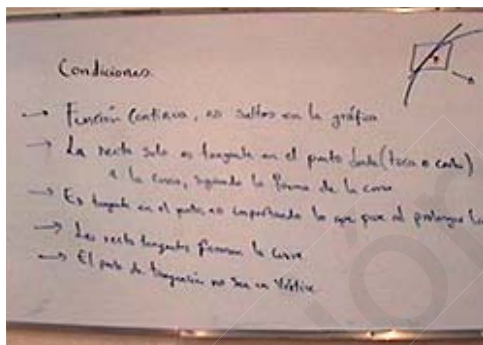 Condiciones.
→ Función Continua, no saltos en la gráfica
→ La recta solo es tangente en el punto dado (toca o corta)
a la curva, siguiendo la forma de la curva
→ Es tangente en el punto, no importando lo que pase al prolongar la
→ Las rectas tangentes forman la curva
→ El punto de tangencia no sea un Vértice